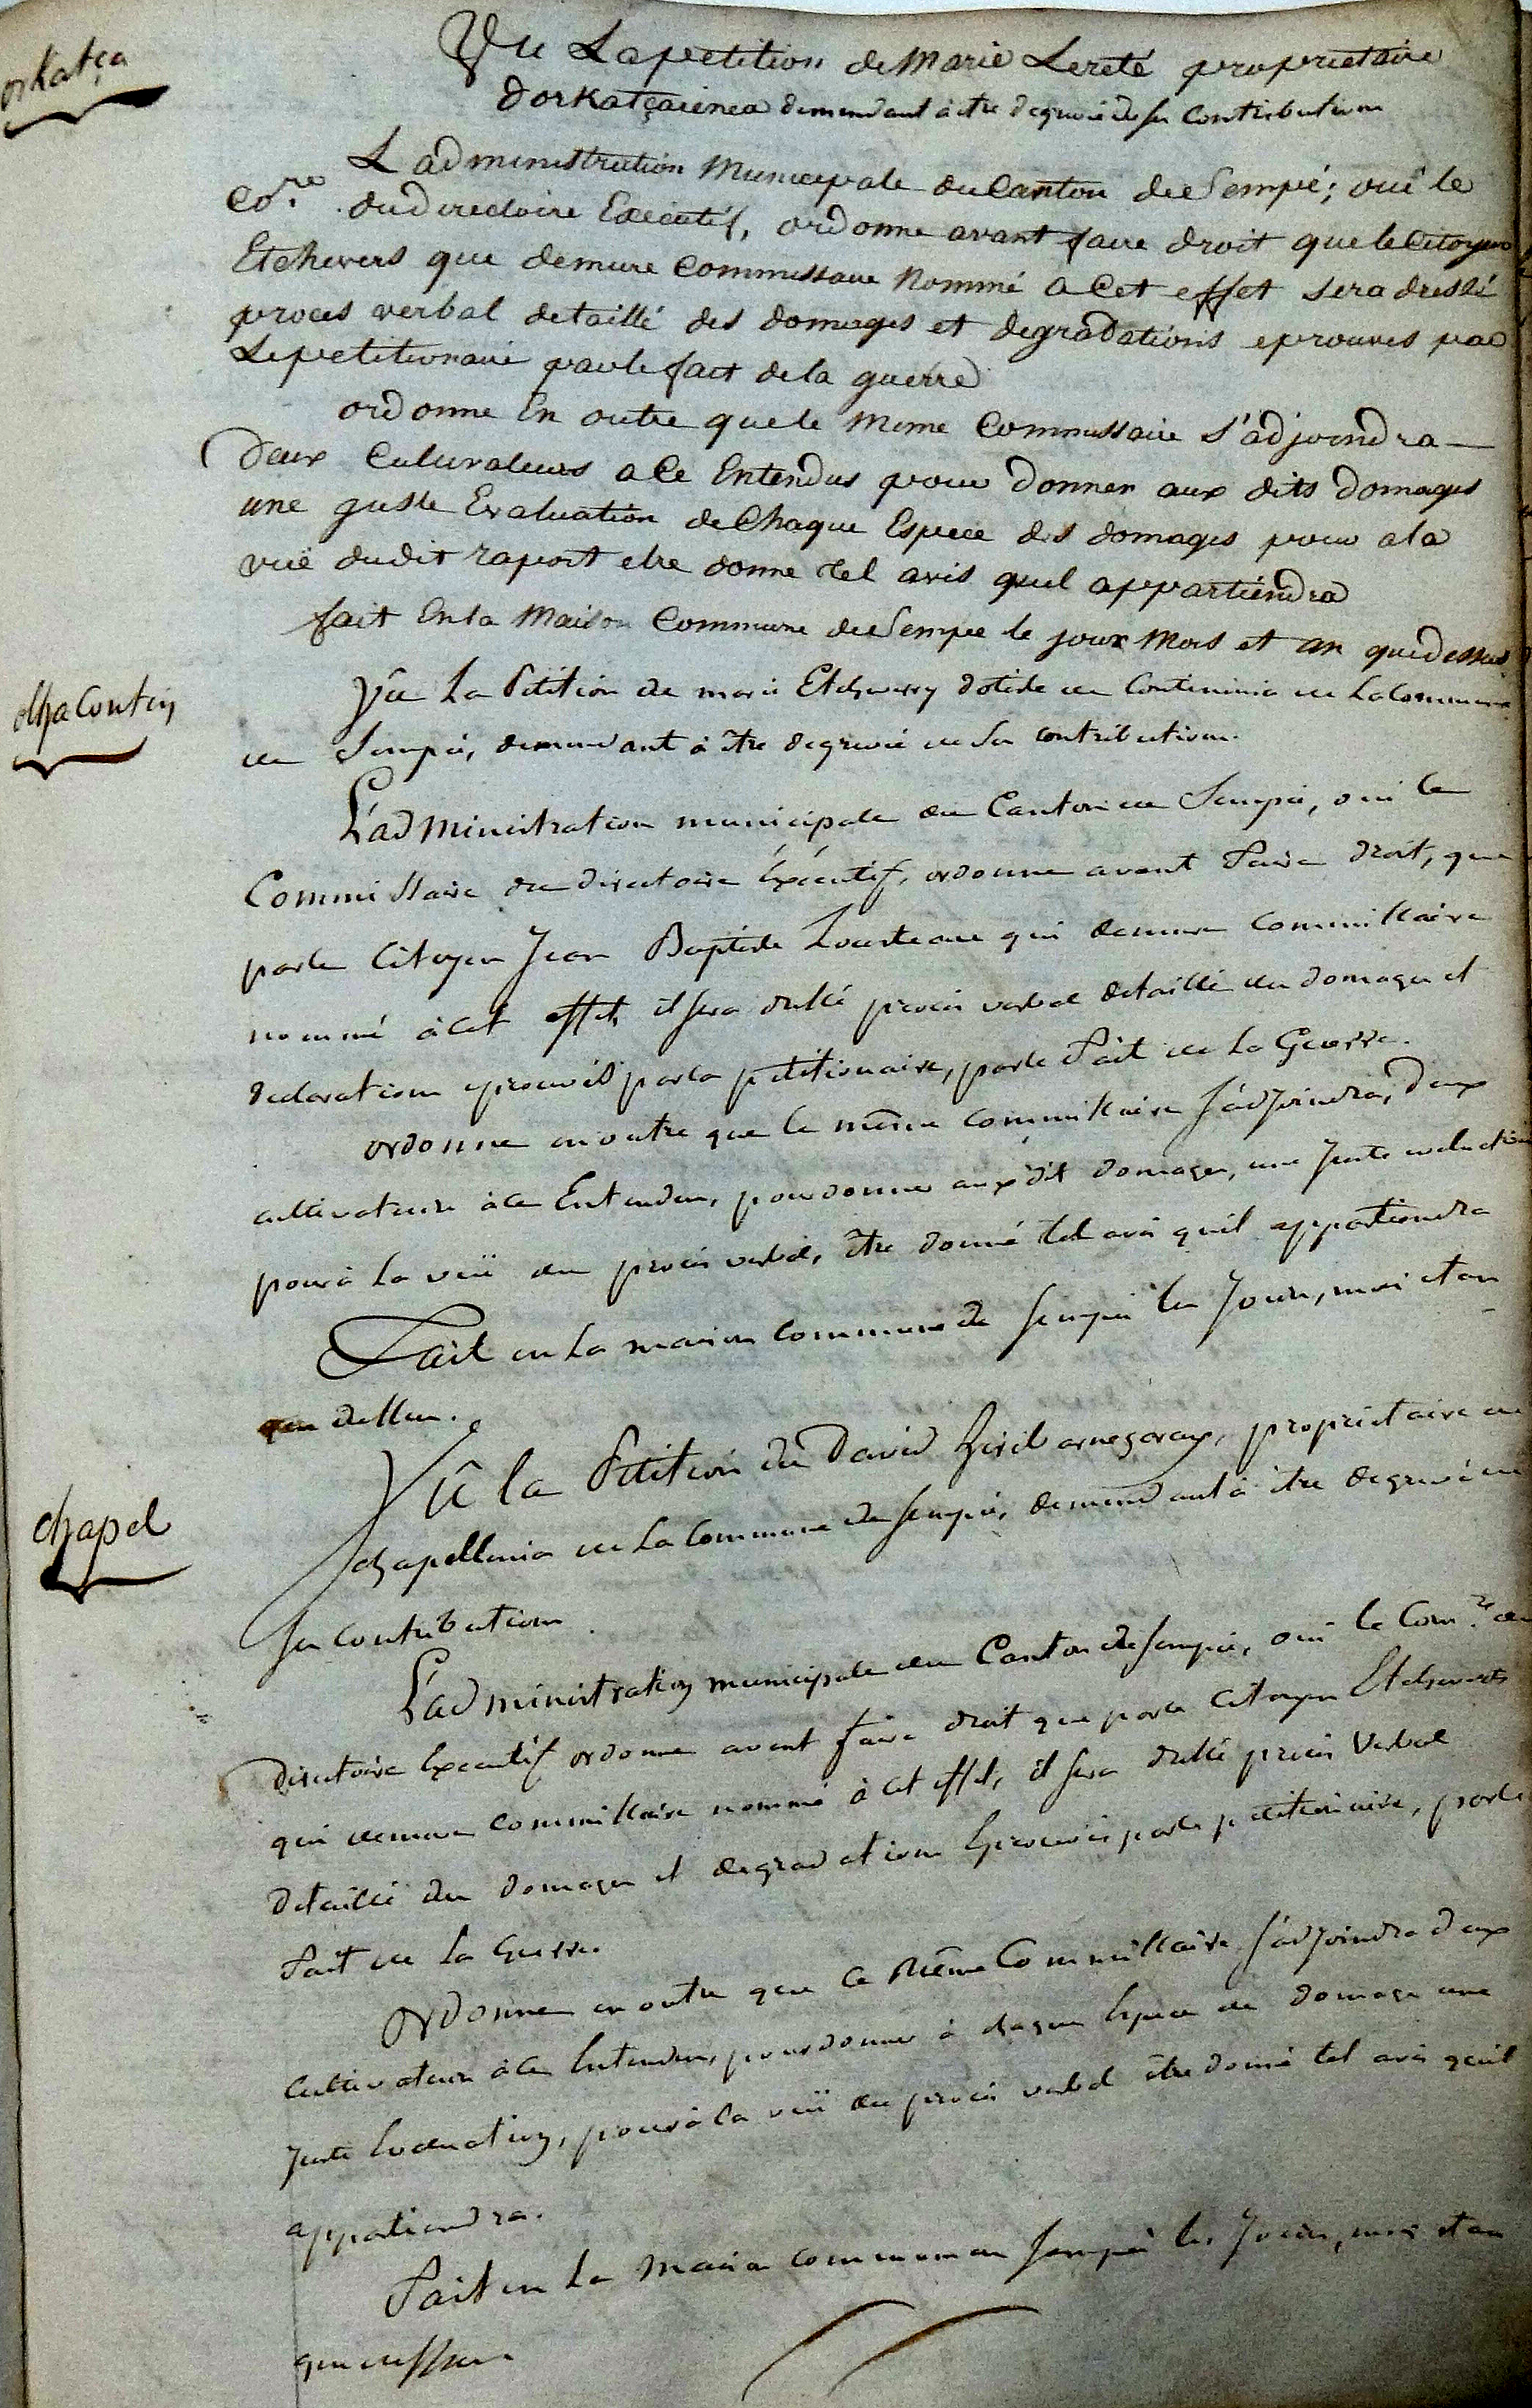 orkatça
Vu La petition de Marie Lereté proprietaire
dorkatçainea demendant à être degrevé de sa Contribution
L'administration Municipale du Canton de Sempé; oui le
Co.re du directoire Executif, ordonne avant faire droit que le Citoyen
Etchevers que demure Commissaire Nommé a Cet effet sera dressé
proces verbal detaillé des domages et degradations eprouvés par
Le petitionaire par le fait de la guerre
ordonne En outre que le Meme Commissaire s'adjoindra
deux Culuvateurs a Ce Entendus pour donner aux dits domages
une juste Evaluation de Chaque Espece des domages pour a la
vuë du dit raport etre donne tel avis quil appartiendra
fait En la Maison Commune de Sempée le jour Mois et an que dessus
dhaContin
Vû La Pétition de marie Etcheverry de Contininia de La Commune
de Sempé, demandant à être degrevé de sa contribution.
L'administration municipale du Canton de Sempé, oui le
Commissaire du directoire Exécutif, ordonne avant faire droit, que
par le Citoyen Jean Baptiste Lousteau qui demure Commissaire
nommé à cet effet, il sera dressé procès verbal detaillé des domages et
declarations eprouvés par la petitionaire, par le fait de La Guerre.
ordonne en outre que le même commissaire s'adjoindra, deux
cultivateurs à ce Entendus, pour donner aux dit domages, une Juste evaluation
pour à la vuë du procès verbal, être donné tel avis quil appartiendra
Fait en La maison commune de Sempé les Jour, mois et an
que dessus.
chapel
Vû la Pétition de David harnegaray, propriétaire de
chapellenia de La Commune de Sempé, demendant à être degrevé de
sa contribution
L'administration municipale du Canton de Sempé, oui le Com.re du
Directoire Executif ordonne avant faire droit que par le Citoyen Etcheverts
qui demure commissaire nommé à cet effet, il sera dressé procès verbal
detaillé des domages et degradations Eprouvés par le petitionaire, par le
fait de La Guerre.
Ordonne en outre que ce Même Commissaire s'adjoindra deux
Cultivateurs à ce Entendus, pour donner à chaque Espece de domage une
Juste Evaluation, pour à la vuë du procès verbal être donné tel avis quil
appartiendra.
Fait en La Maison commune de Sempé les Jour, mois et an
que dessus